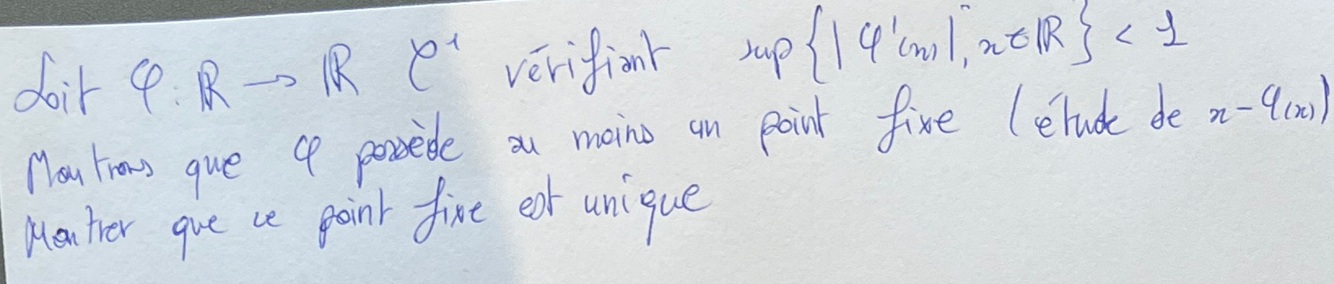 Soit φ : ℝ → ℝ C¹ vérifiant sup{|φ'(x)|, x∈ℝ} < 1
Montrons que φ possède au moins un point fixe (étude de x-φ(x))
Montrer que ce point fixe est unique